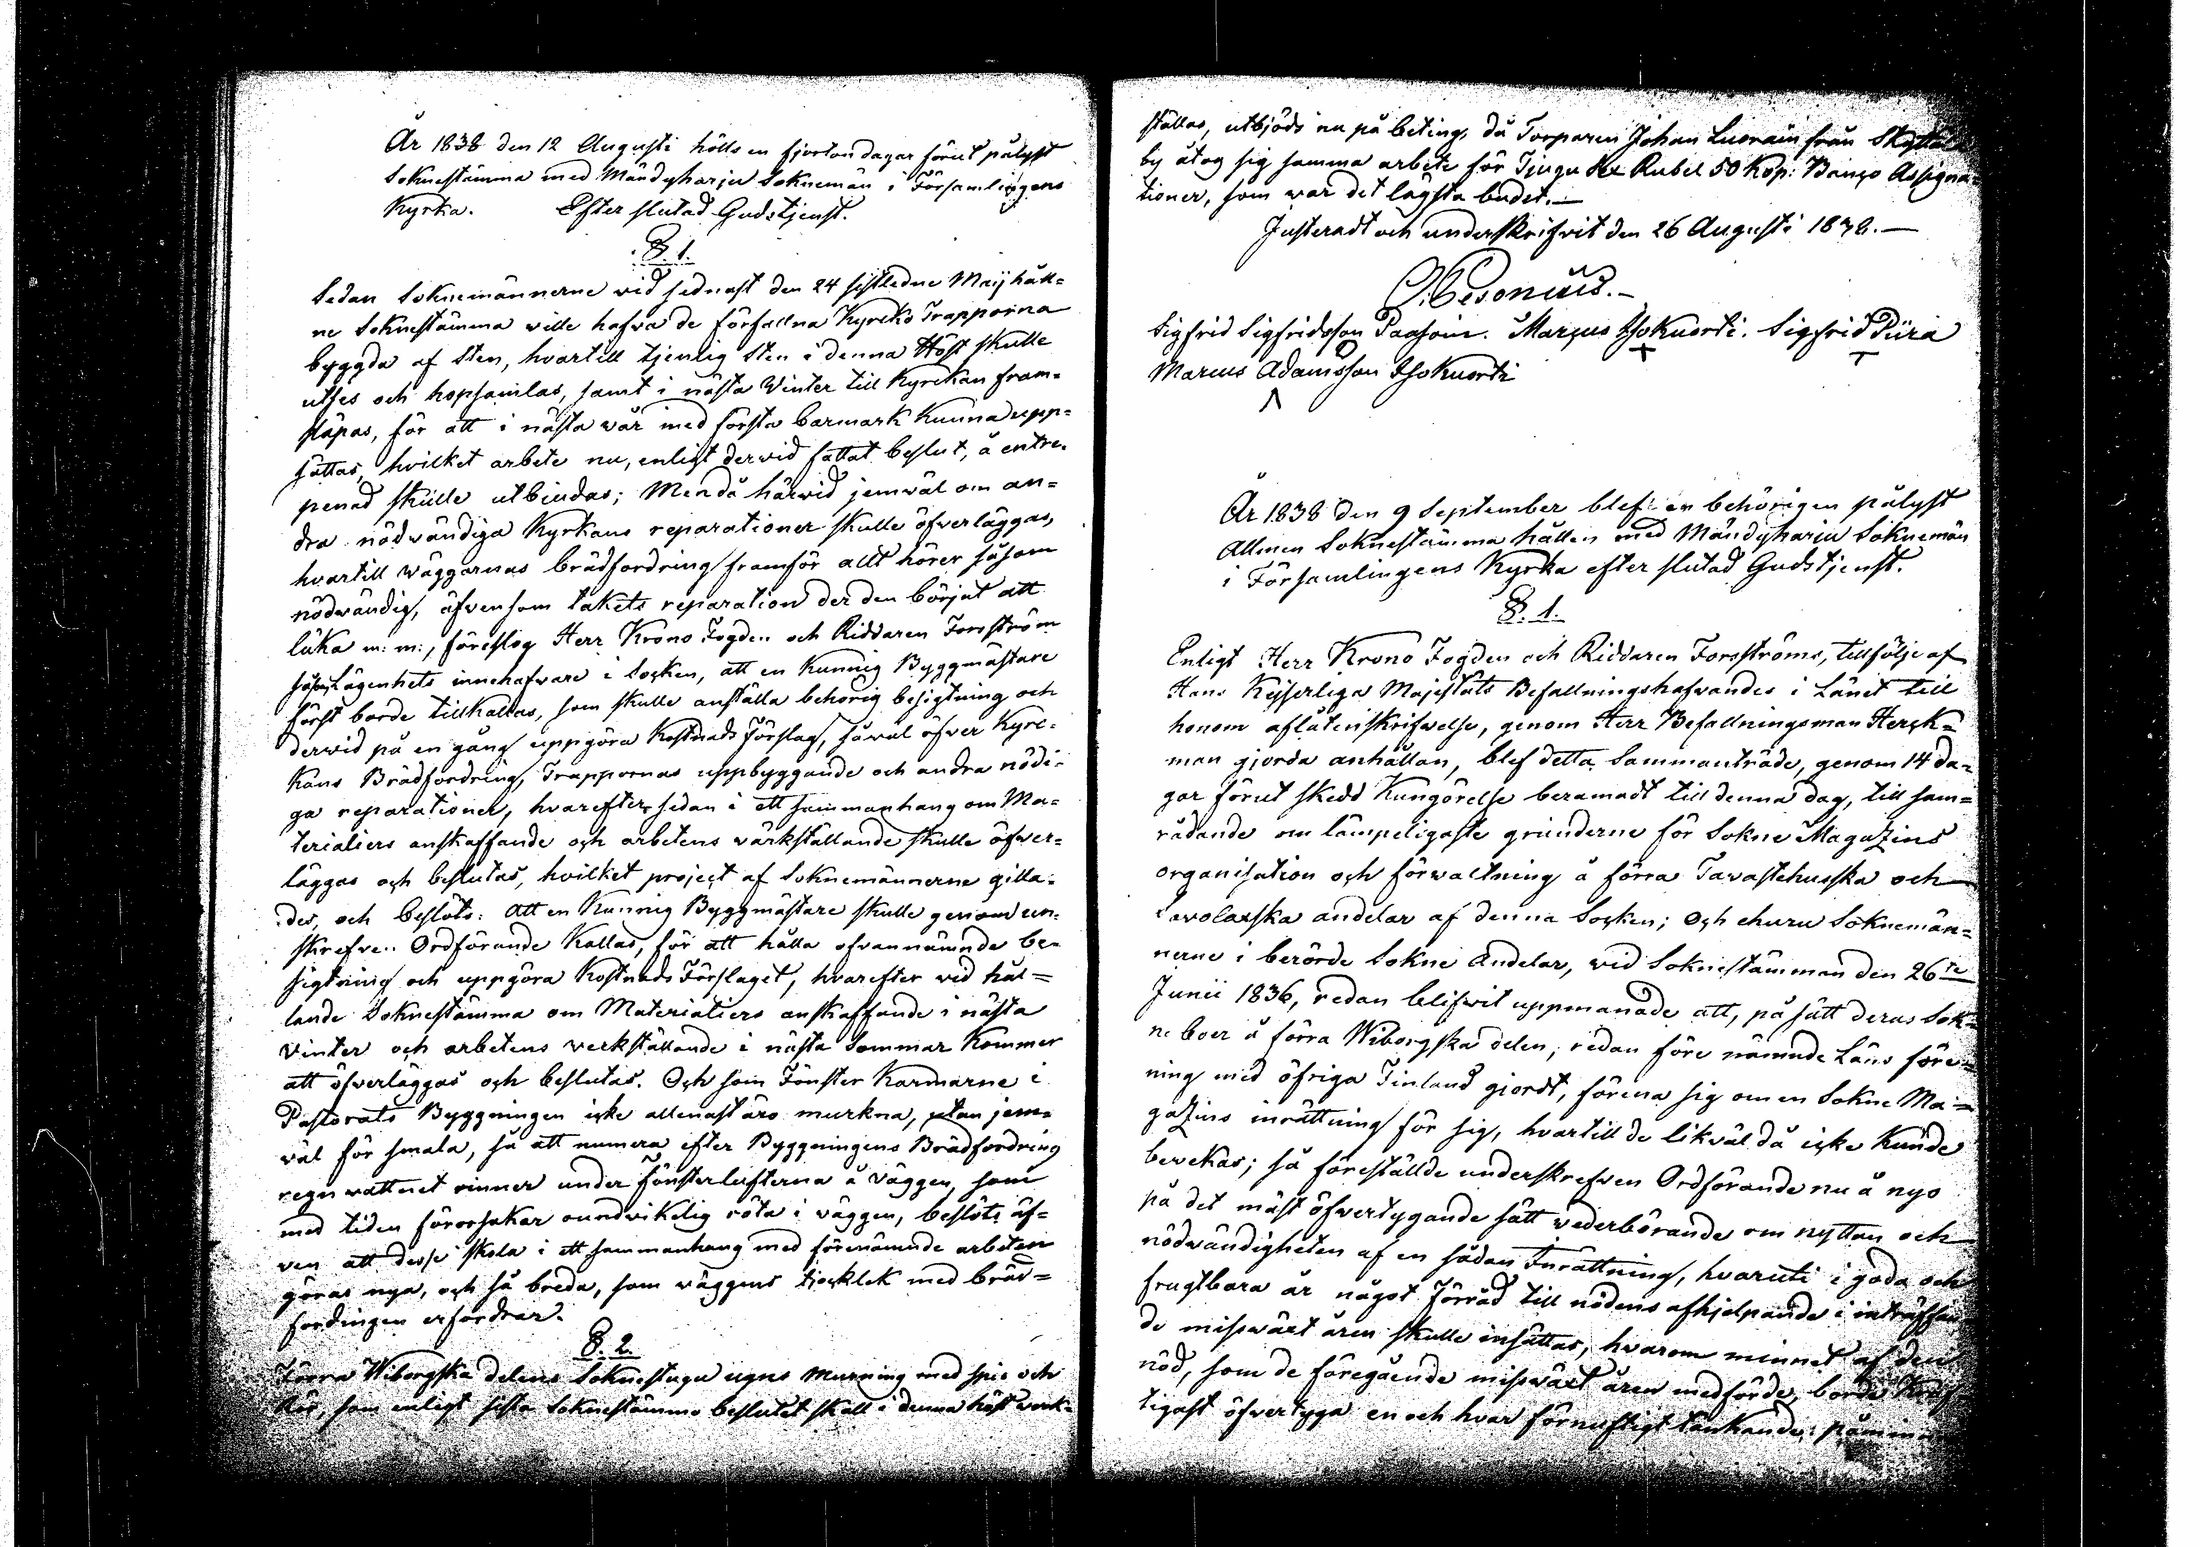 År 1838 den 12 Augusti hölls en fjorton dagar förut pålyst
Soknestämma med Mändyharju Soknemän i Församlingens
Kyrka. Efter slutad Gudstjenst.
§. 1.
Sedan Soknemännerne vid sednast den 24 sistledne Maij håll=
ne Soknestämma wille hafva de förfallna Kyrko Trapporna
byggda af Sten, hvartill tjenlig Sten i denna Höst skulle
utses och hopsamlas, samt i nästa Winter till Kyrckan fram=
släpas, för att i nästa wår med första barmark kunna upp=
sättas, hvilket arbete nu, enligt derwid fattat beslut, å entre=
penad skulle utbjudas; Men då härwid jemwäl om an=
dra nödwändiga Kyrkans reparationer skulle öfverläggas,
hvartill wäggarnas brädfordring framför allt hörer såsom
nödwändig, äfvensom takets reparation der den börjat att
läka m: m:, föreslog Herr Krono Fogden och Riddaren Forsström
såsom Lägenhets innehafware i Socken, att en kunnig Byggmästare
först borde tillkallas, som skulle anställa behörig besigtning och
derwid på en gång uppgöra Kostnads Förslag, såwäl öfver Kyrc=
kans Brädfordring, Trappornas uppbyggande och andra nödi=
ga reparationer, hvarefter sedan i ett sammanhang om Ma=
terialiers anskaffande och arbetens värkställande skulle öfwer=
läggas och beslutas, hvilket project af Soknemännerne gilla=
des, och beslöts: Att en Kunnig Byggmästare skulle genom un=
skrefven Ordförande Kallas, för att hålla ofvannämnde be=
sigtning och uppgöra Kostnads Förslaget, hvarefter vid hål=
lande Soknestämma om Materialiers anskaffande i nästa
Vinter och arbetens verkställande i nästa Sommar Kommer
att öfverläggas och beslutas. Och som Fönster Karmarne i
Pastorats Byggningen icke allenast äro murkna, utan jem=
väl för smala, så att numera efter Byggningens Brädfordring
regn wattnet rinner under Fönsterlufterna å Väggen, som
med tiden förorsakar oundvikelig röta i väggen, beslöts äf=
ven att desse skola i ett sammanhang med förenämnde arbeten
göras nya, och så breda, som väggens tjocklek med bräd=
fordingen erfordrar.
§. 2.
Förra Wiborgska delens Soknestugu ugns Murning med spis och
Rör, som enligt sista Soknestämmo beslutet skall i denna höst werk=
ställas, utbjöds nu på beting, då Torparen Johan Luorain från
by åtog sig samma arbete för Tjugu Sex Rubel 50 Kop: Banco Assigna=
tioner, som war det lägsta budet.—
Justeradt och underskrifvit den 26 Augusti 1838.—
Sigfrid Sigfridsson Paasoin. Marcus Isokuorti. Sigfrid Piira
Marcus Adamsson Isokuorti
År 1838 den 9 September blef en behörigen pålyst
Allmen Soknestämma hållen med Mändyharju Soknemän
i Församlingens Kyrka efter slutad Gudstjenst.
§. 1.
Enligt Herr Krono Fogden och Riddaren Forsströms, tillfölje af
Hans Kejserliga Majestäts Befallningshafvandes i Länet till
honom aflåten skrifwelse, genom Herr Befallningsman Herck=
man gjorda anhållan, blef detta Sammanträde, genom 14 da=
gar förut skedd Kungörelse beramadt till denna dag, till sam=
rådande om lämpeligaste grunderne för Sokne Magazins
organisation och förwaltning å förra Tavastehusska och
Savolaxska andelar af denna Socken; Och ehuru Soknemän=
nerne i berörde Sokne Andelar, vid Soknestämman den 26te
Junii 1836, redan blifwit uppmanade att, på sätt deras Sok=
ne boer å förra Wiborgska delen, redan före nämnde Läns före=
ning med öfriga Finland gjordt, förena sig om en Sokne Ma=
gazins inrättning för sig, hvartill de likväl då icke Kunde
bevekas; så föreställde underskrefven Ordförande nu å nyo
på det mäst öfvertygande sätt vederbörande om nyttan och
nödwändigheten af en sådan Inrättning, hvaruti i goda och
frugtbara år något förråd till nödens afhjelpande i inträffan
de misswäxt åren skulle insättas, hvarom minnet af den
nöd, som de föregående misswäxt åren medförde, borde
tigast öfvertyga en och hvar förnuftigt tänkande: